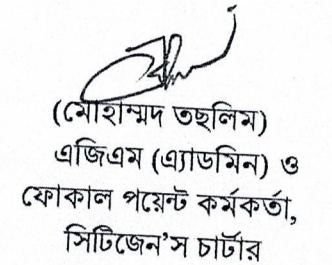 (মোহাম্মদ তছলিম)
এজিএম (এ্যাডমিন) ও
ফোকাল পয়েন্ট কর্মকর্তা,
সিটিজেন’স চার্টার